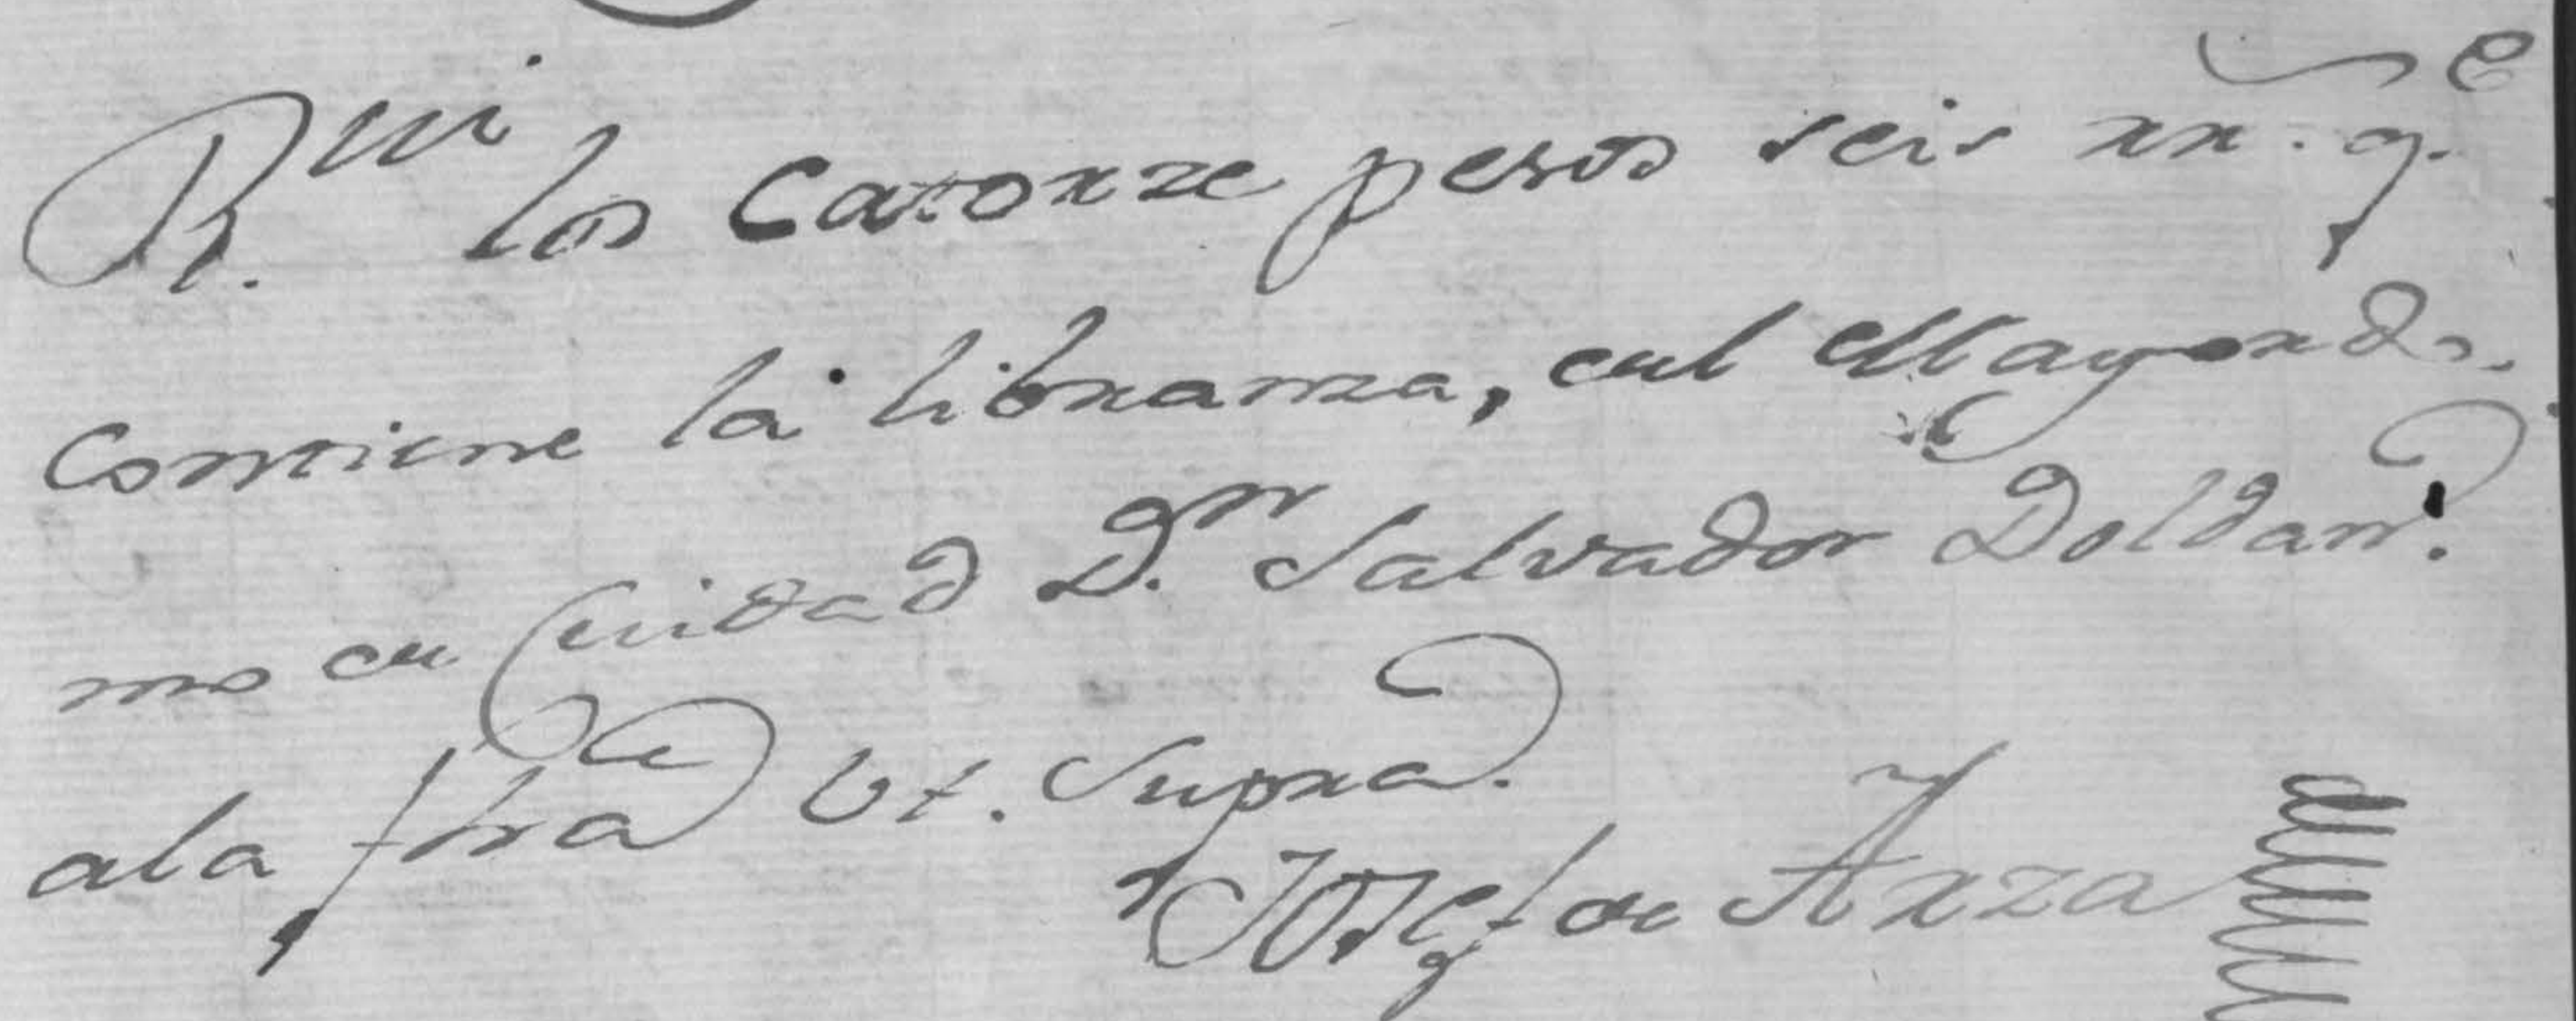 R.vi los Catorze pesos seis rr.s q.e
Contiene la libranza, del Mayordo-
mo de Ciudad D.n Salvador Doldan.
ala fha Vt. Supra.
Josef de Arza